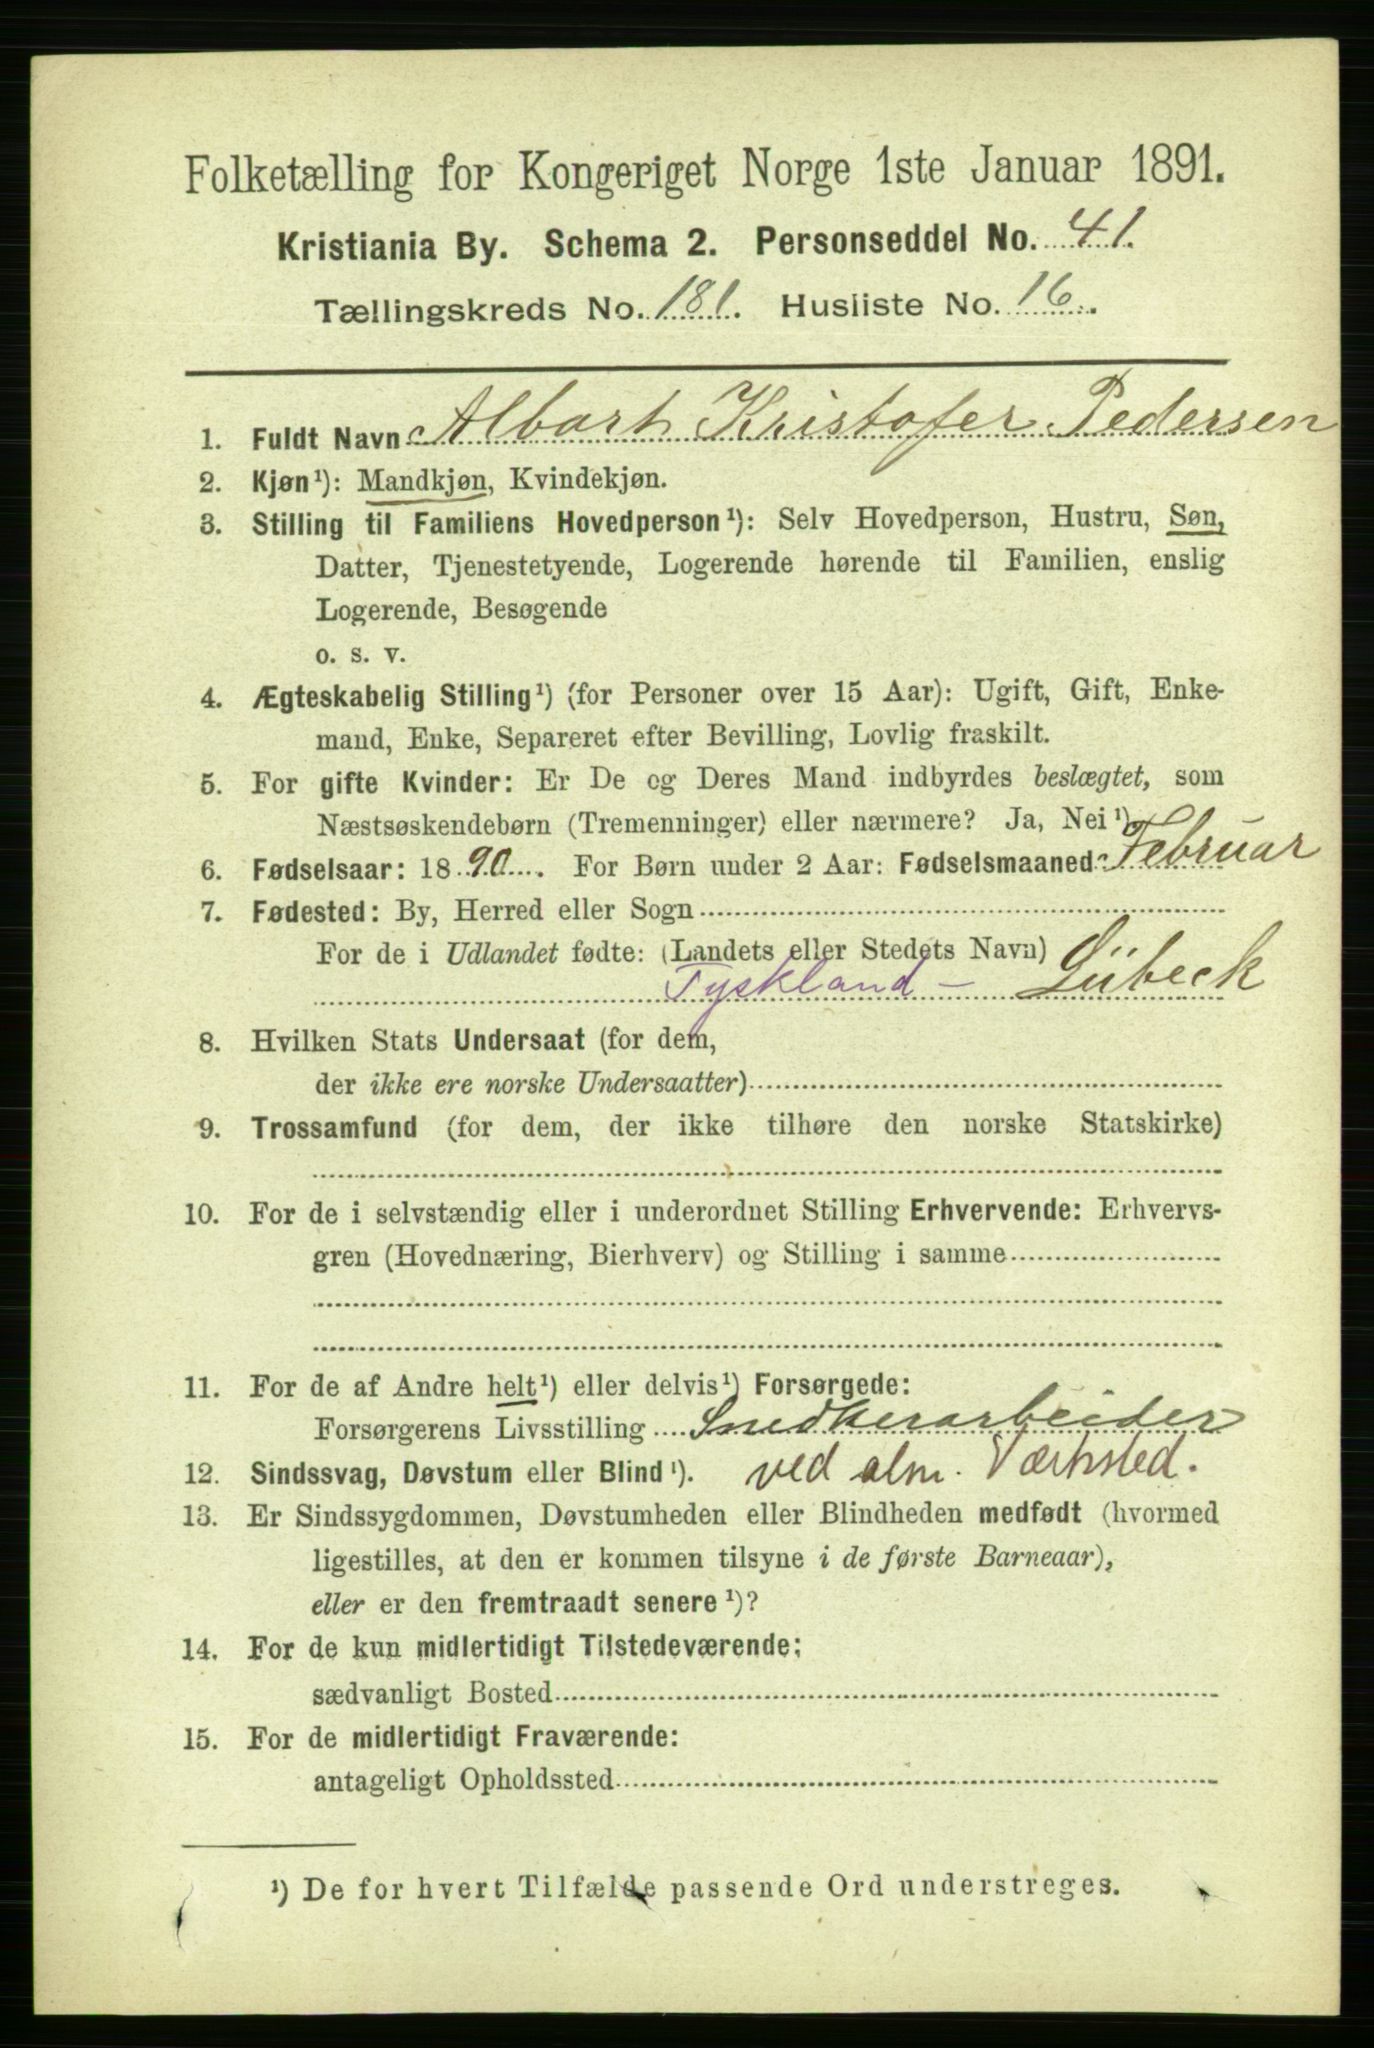 Folketælling for Kongeriget Norge 1ste Januar 1891.
Kristiania By. Schema 2. Personseddel No. 41.
Tællingskreds No. 181. Husliste No. 16.
1. Fuldt Navn Albart Kristofer Pedersen
2. Kjøn¹): Mandkjøn, Kvindekjøn.
3. Stilling til Familiens Hovedperson¹): Selv Hovedperson, Hustru, Søn,
Datter, Tjenestetyende, Logerende hørende til Familien, enslig
Logerende, Besøgende
o. s. v.
4. Ægteskabelig Stilling¹) (for Personer over 15 Aar): Ugift, Gift, Enke-
mand, Enke, Separeret efter Bevilling, Lovlig fraskilt.
5. For gifte Kvinder: Er De og Deres Mand indbyrdes beslægtet, som
Næstsøskendebørn (Tremenninger) eller nærmere? Ja, Nei¹).
6. Fødselsaar: 1890. For Børn under 2 Aar: Fødselsmaaned: Februar
7. Fødested: By, Herred eller Sogn
For de i Udlandet fødte: (Landets eller Stedets Navn)
Tyskland – Lübeck
8. Hvilken Stats Undersaat (for dem,
der ikke ere norske Undersaatter)
9. Trossamfund (for dem, der ikke tilhøre den norske Statskirke)
10. For de i selvstændig eller i underordnet Stilling Erhvervende: Erhvervs-
gren (Hovednæring, Bierhverv) og Stilling i samme
11. For de af Andre helt¹) eller delvis¹) Forsørgede:
Forsørgerens Livsstilling Snedkerarbeider
12. Sindssvag, Døvstum eller Blind¹). ved alm. Værksted.
13. Er Sindssygdommen, Døvstumheden eller Blindheden medfødt (hvormed
ligestilles, at den er kommen tilsyne i de første Barneaar),
eller er den fremtraadt senere¹)?
14. For de kun midlertidigt Tilstedeværende:
sædvanligt Bosted
15. For de midlertidigt Fraværende:
antageligt Opholdssted
¹) De for hvert Tilfælde passende Ord understreges.